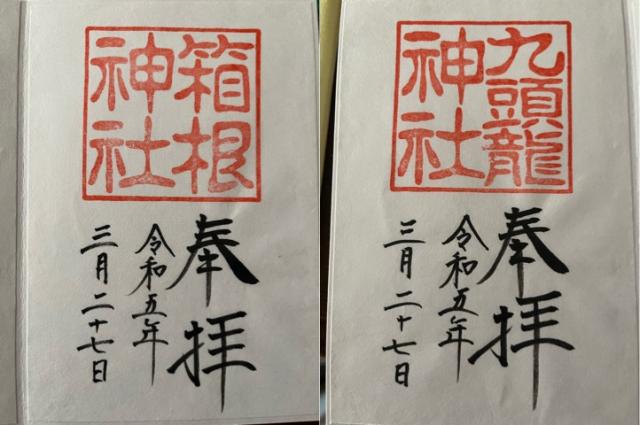 箱根
神社
奉拝
令和五年
三月二十七日
九頭龍
神社
奉拝
令和五年
三月二十七日